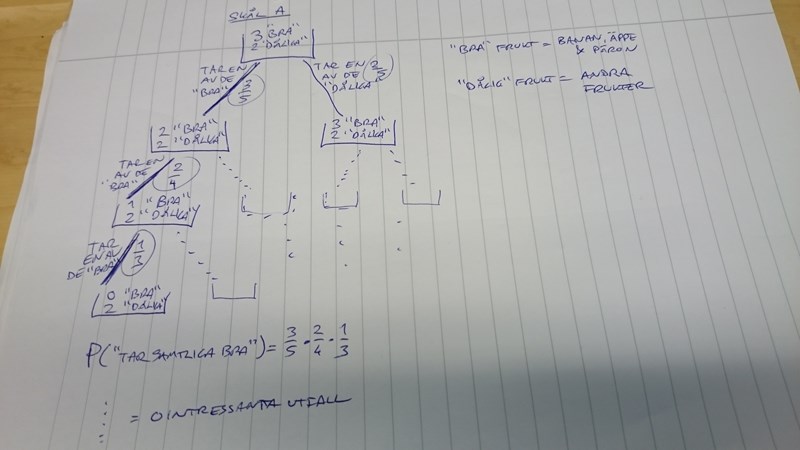 SKÅL A
3 "BRA"
2 "DÅLIGA"
TAR EN
AV DE
"BRA"
3/5
TAR EN
AV DE
"DÅLIGA"
2/5
"BRA" FRUKT = BANAN, ÄPPE
& PÄRON
"DÅLIG" FRUKT = ANDRA
FRUKTER
2 "BRA"
2 "DÅLIGA"
3 "BRA"
2 "DÅLIGA"
TAR EN
AV DE
"BRA"
2/4
1 "BRA"
2 "DÅLIGA"
TAR
EN AV
DE "BRA"
1/3
0 "BRA"
2 "DÅLIGA"
P("TAR SAMTLIGA BRA") = 3/5 · 2/4 · 1/3
= OINTRESSANTA UTFALL